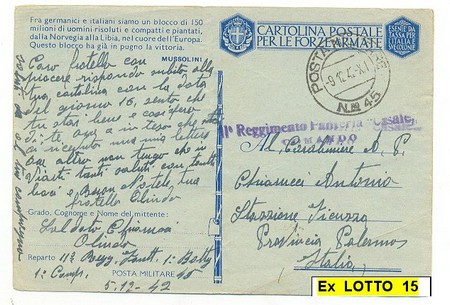 Fra germanici e italiani siamo un blocco di 150
milioni di uomini risoluti e compatti e piantati,
dalla Norvegia alla Libia, nel cuore dell'Europa.
Questo blocco ha già in pugno la vittoria.
MUSSOLINI
Caro fratello con
piacere rispondo subito alla
tua cartolina con la data
del giorno 16, sento che
tu stai bene e così
di te, 
ricevuto una lettera
altro non tengo che
tanti saluti con tanti
baci e Buon Natale, tuo
fratello Olindo
Grado, Cognome e Nome del mittente:
Soldato
Olindo
Reparto 11° Regg. Fant. 1° Batt.
1° Comp. POSTA MILITARE 45
5-12-42
CARTOLINA POSTALE
PER LE FORZE ARMATE
ESENTE DA
TASSA PER
L'ITALIA E
SUE COLONIE
POSTA MILITARE
N.° 45
11° Reggimento Fanteria "Casale"
COMANDO
Al Carabiniere A. P.
Antonio
Stazione
Provincia Palermo
Italia
Ex LOTTO 15